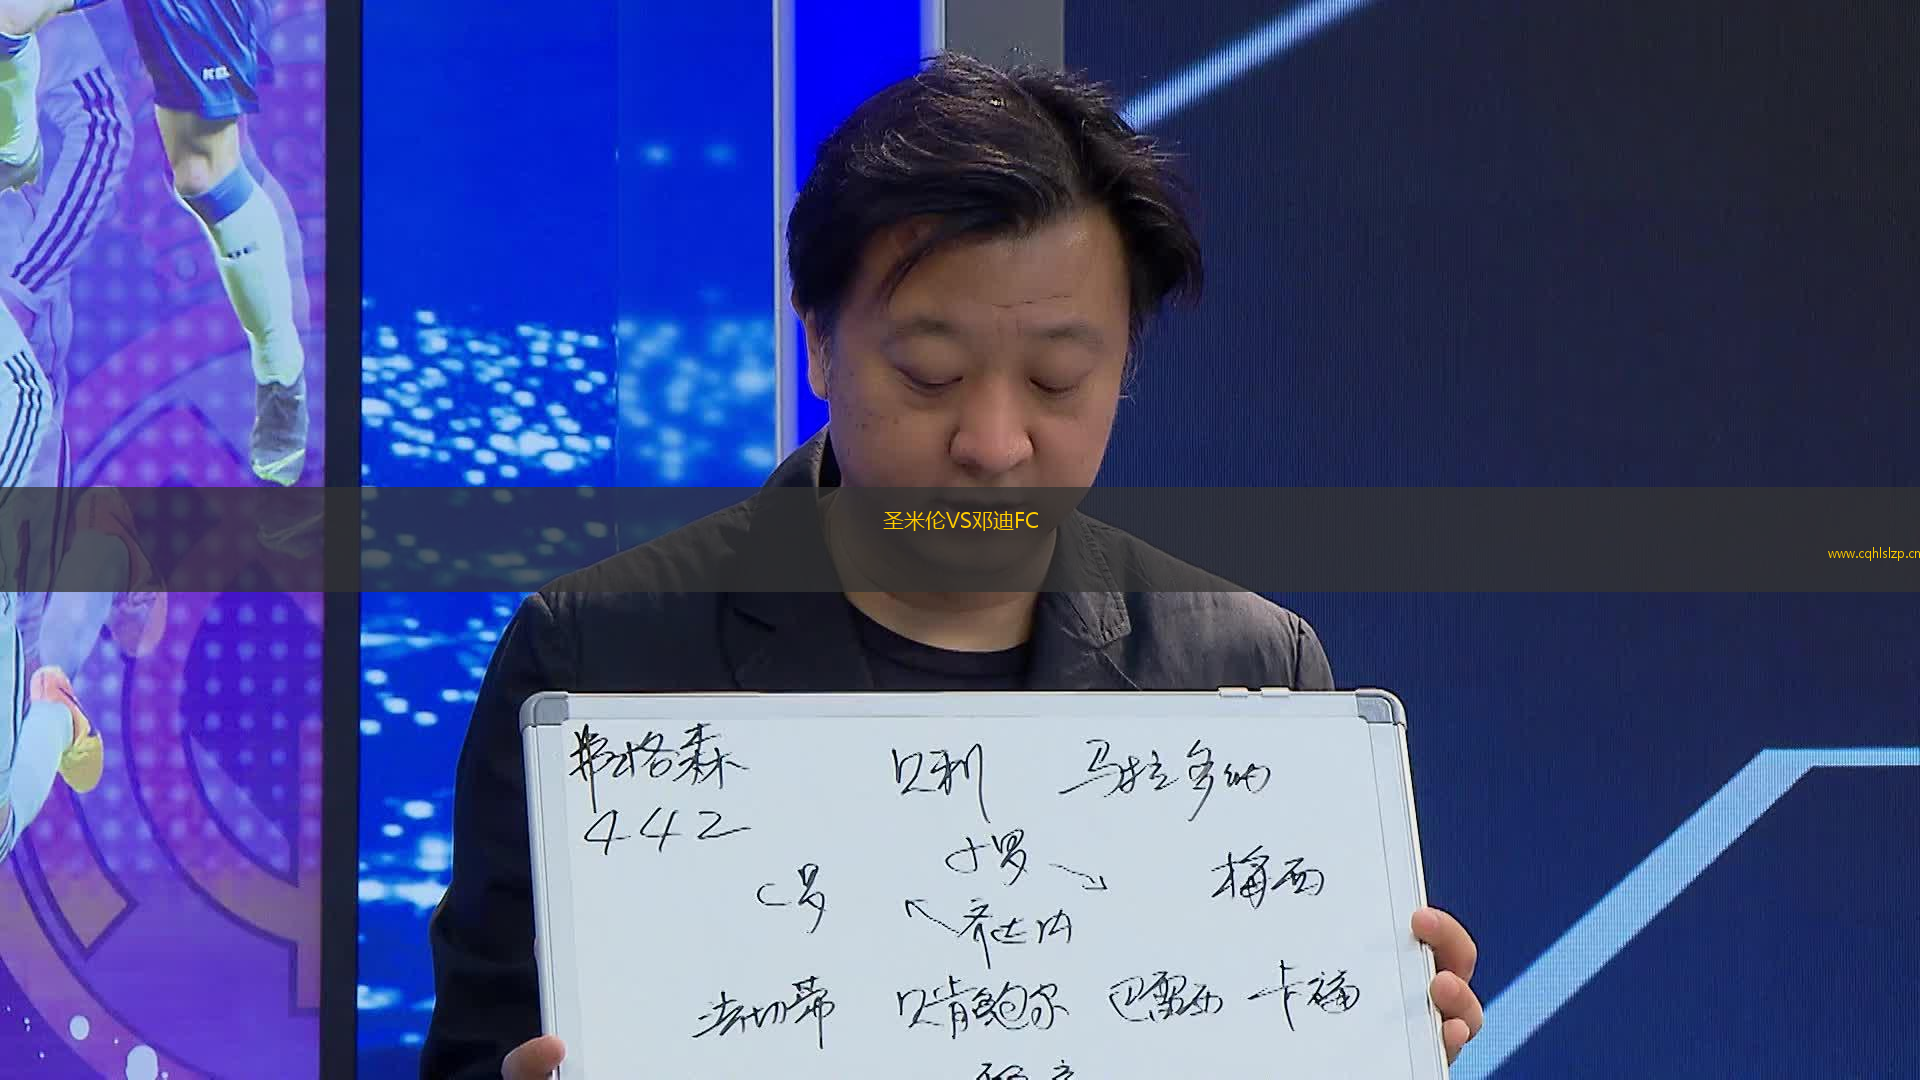 圣米伦VS邓迪FC
www.cqhlslzp.cn
弗格森 贝利 马拉多纳
442
小罗
C罗 梅西
齐达内
法切蒂 贝肯鲍尔 巴雷西 卡福